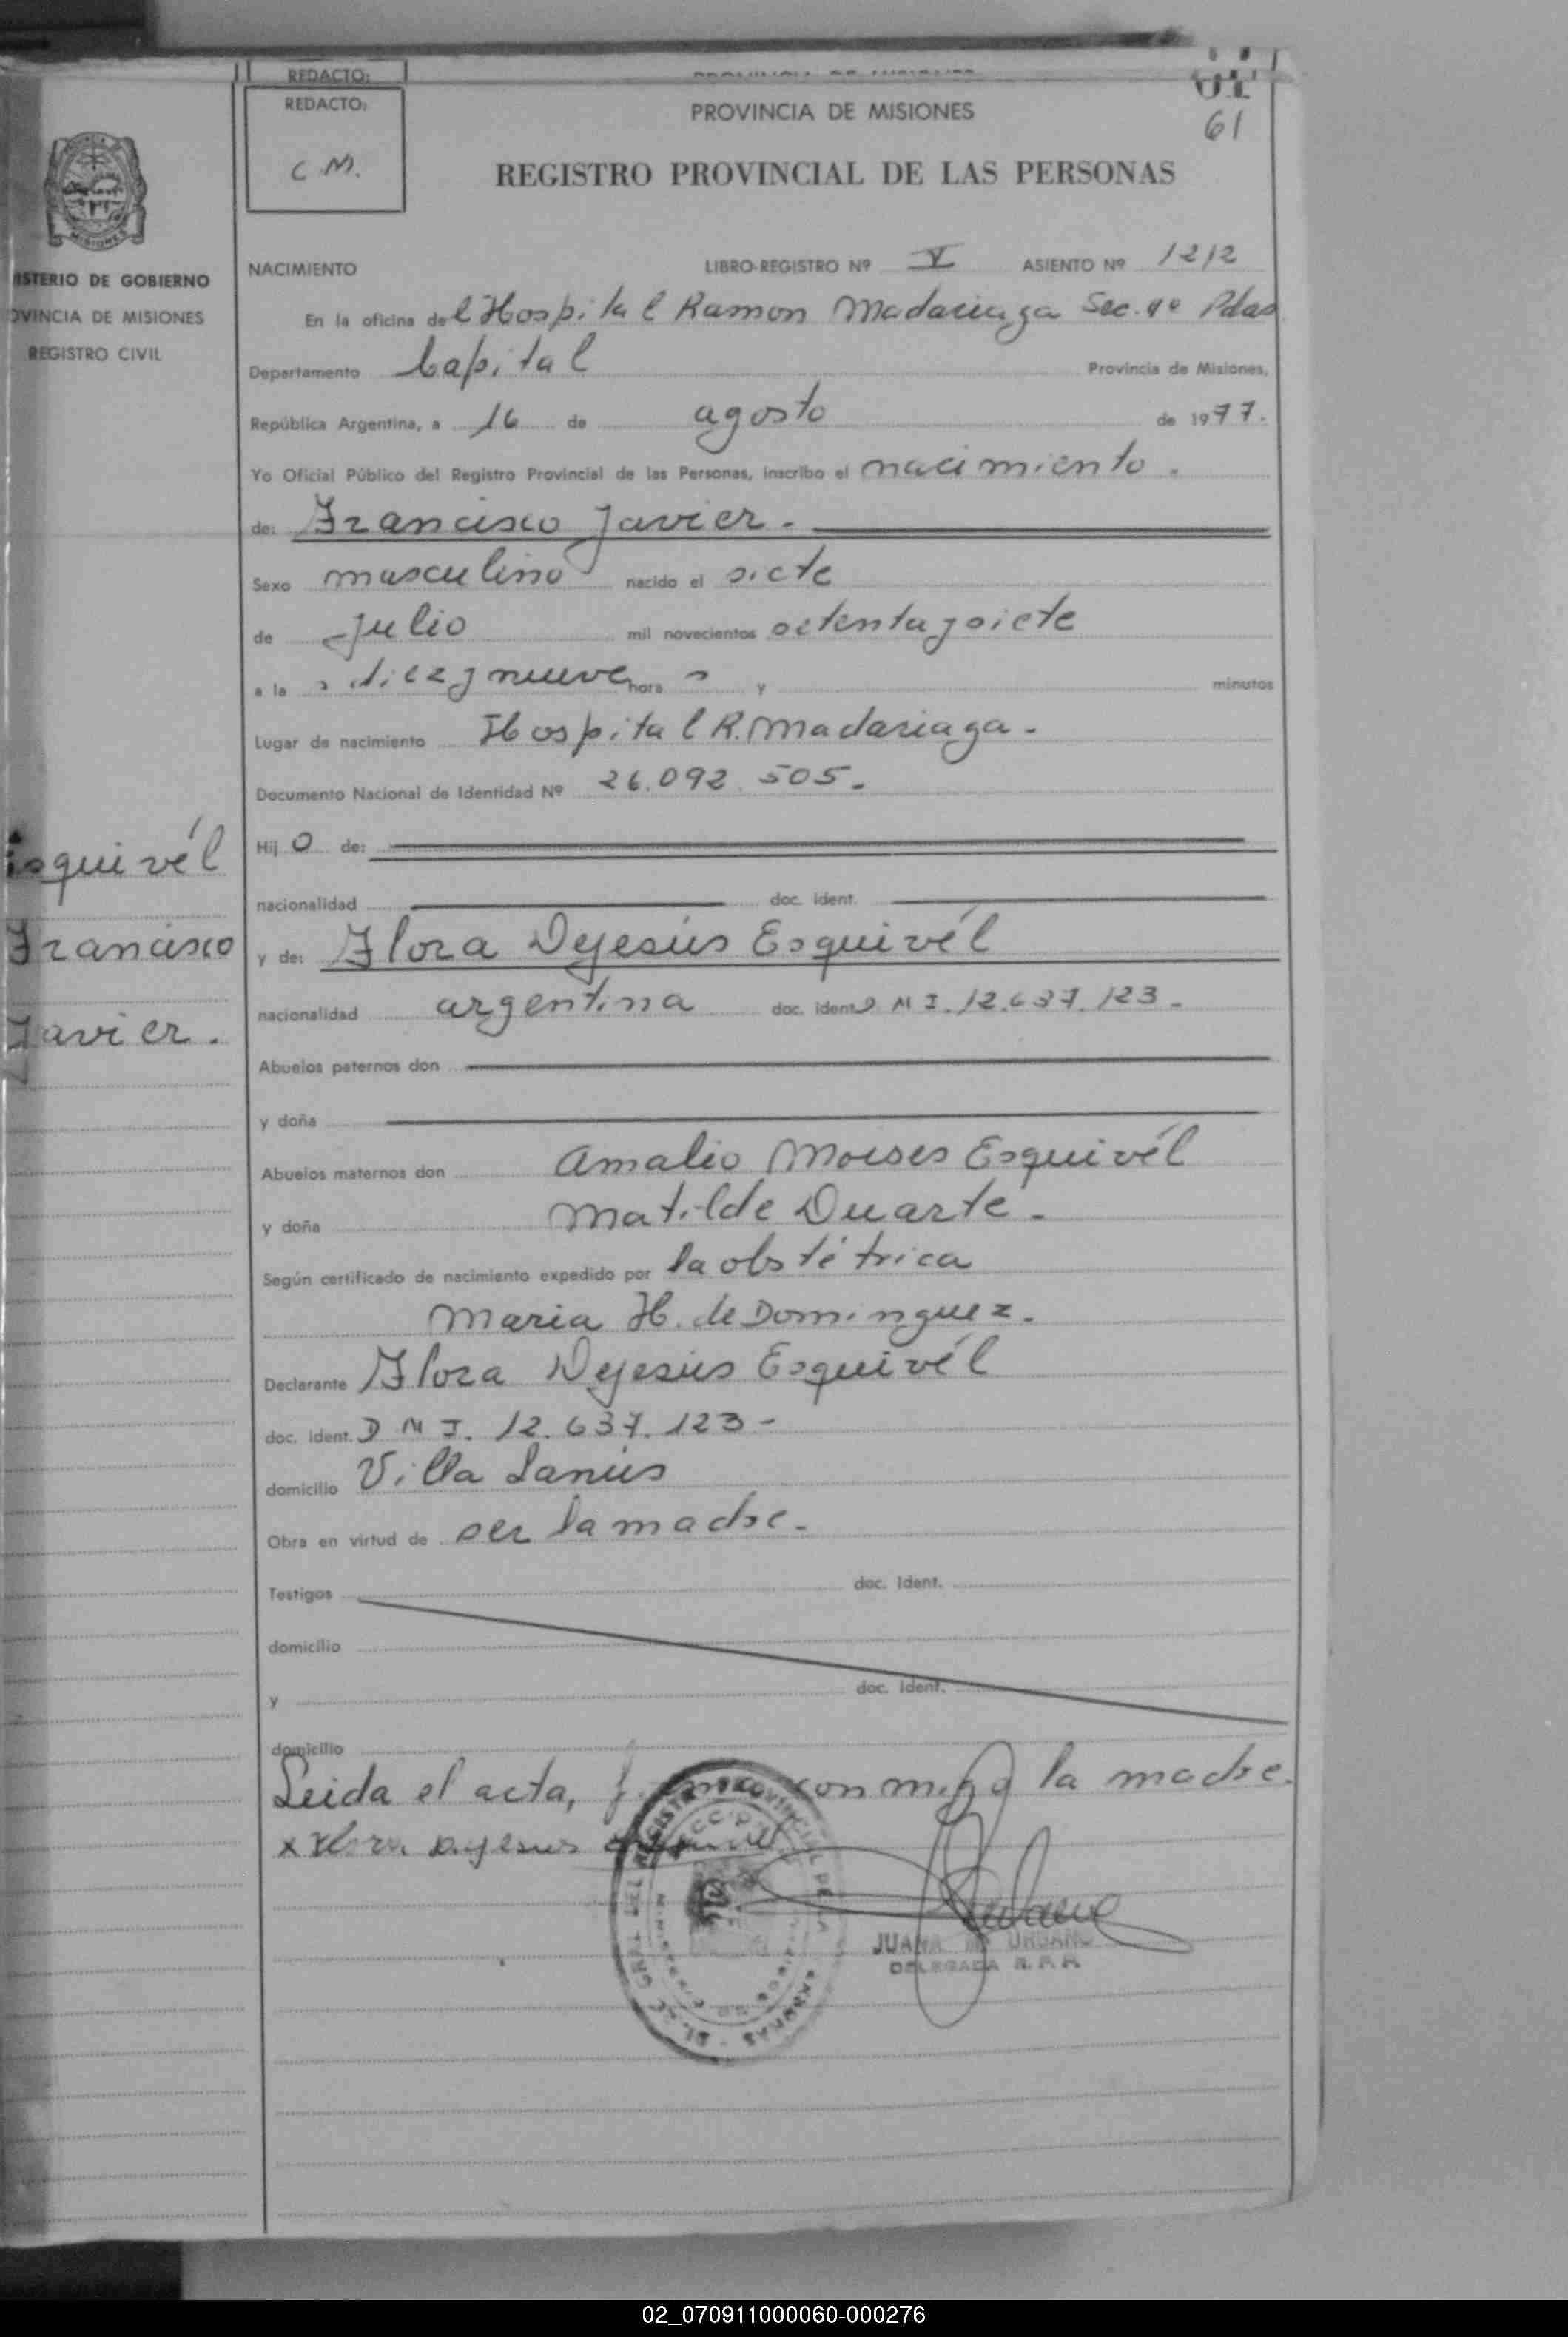 REDACTO:
REDACTO:
C.M.
PROVINCIA DE MISIONES
61
REGISTRO PROVINCIAL DE LAS PERSONAS
MISIONES
ISTERIO DE GOBIERNO
OVINCIA DE MISIONES
REGISTRO CIVIL
NACIMIENTO LIBRO-REGISTRO Nº V ASIENTO Nº 1212
En la oficina del Hospital Ramon Madariaga Sec. 4º Pdas
Departamento Capital Provincia de Misiones,
República Argentina, a 16 de agosto de 1977.
Yo Oficial Público del Registro Provincial de las Personas, inscribo el nacimiento.
de: Francisco Javier.-
Sexo masculino nacido el siete
de Julio mil novecientos setenta y siete
a la s diez y nueve hora s y minutos
Lugar de nacimiento Hospital R. Madariaga.-
Documento Nacional de Identidad Nº 26.092.505.-
Hij o de:
nacionalidad doc. ident.
Esquivél
Francisco
Javier.
y de: Flora Dejesús Esquivél
nacionalidad argentina doc. ident D N I. 12.637.123.-
Abuelos paternos don
y doña
Abuelos maternos don Amalio Moises Esquivél
y doña Matilde Duarte.-
Según certificado de nacimiento expedido por la obstétrica
Maria H. de Dominguez.-
Declarante Flora Dejesús Esquivél
doc. ident. D N I. 12.637.123-
domicilio Villa Lanús
Obra en virtud de ser la madre.-
Testigos doc. ident.
domicilio
y doc. ident.
domicilio
Leida el acta, firma conmigo la madre.
x Flora Dejesus Esquivel
JUANA M. URBANO
DELEGADA R. P. P.
02_070911000060-000276